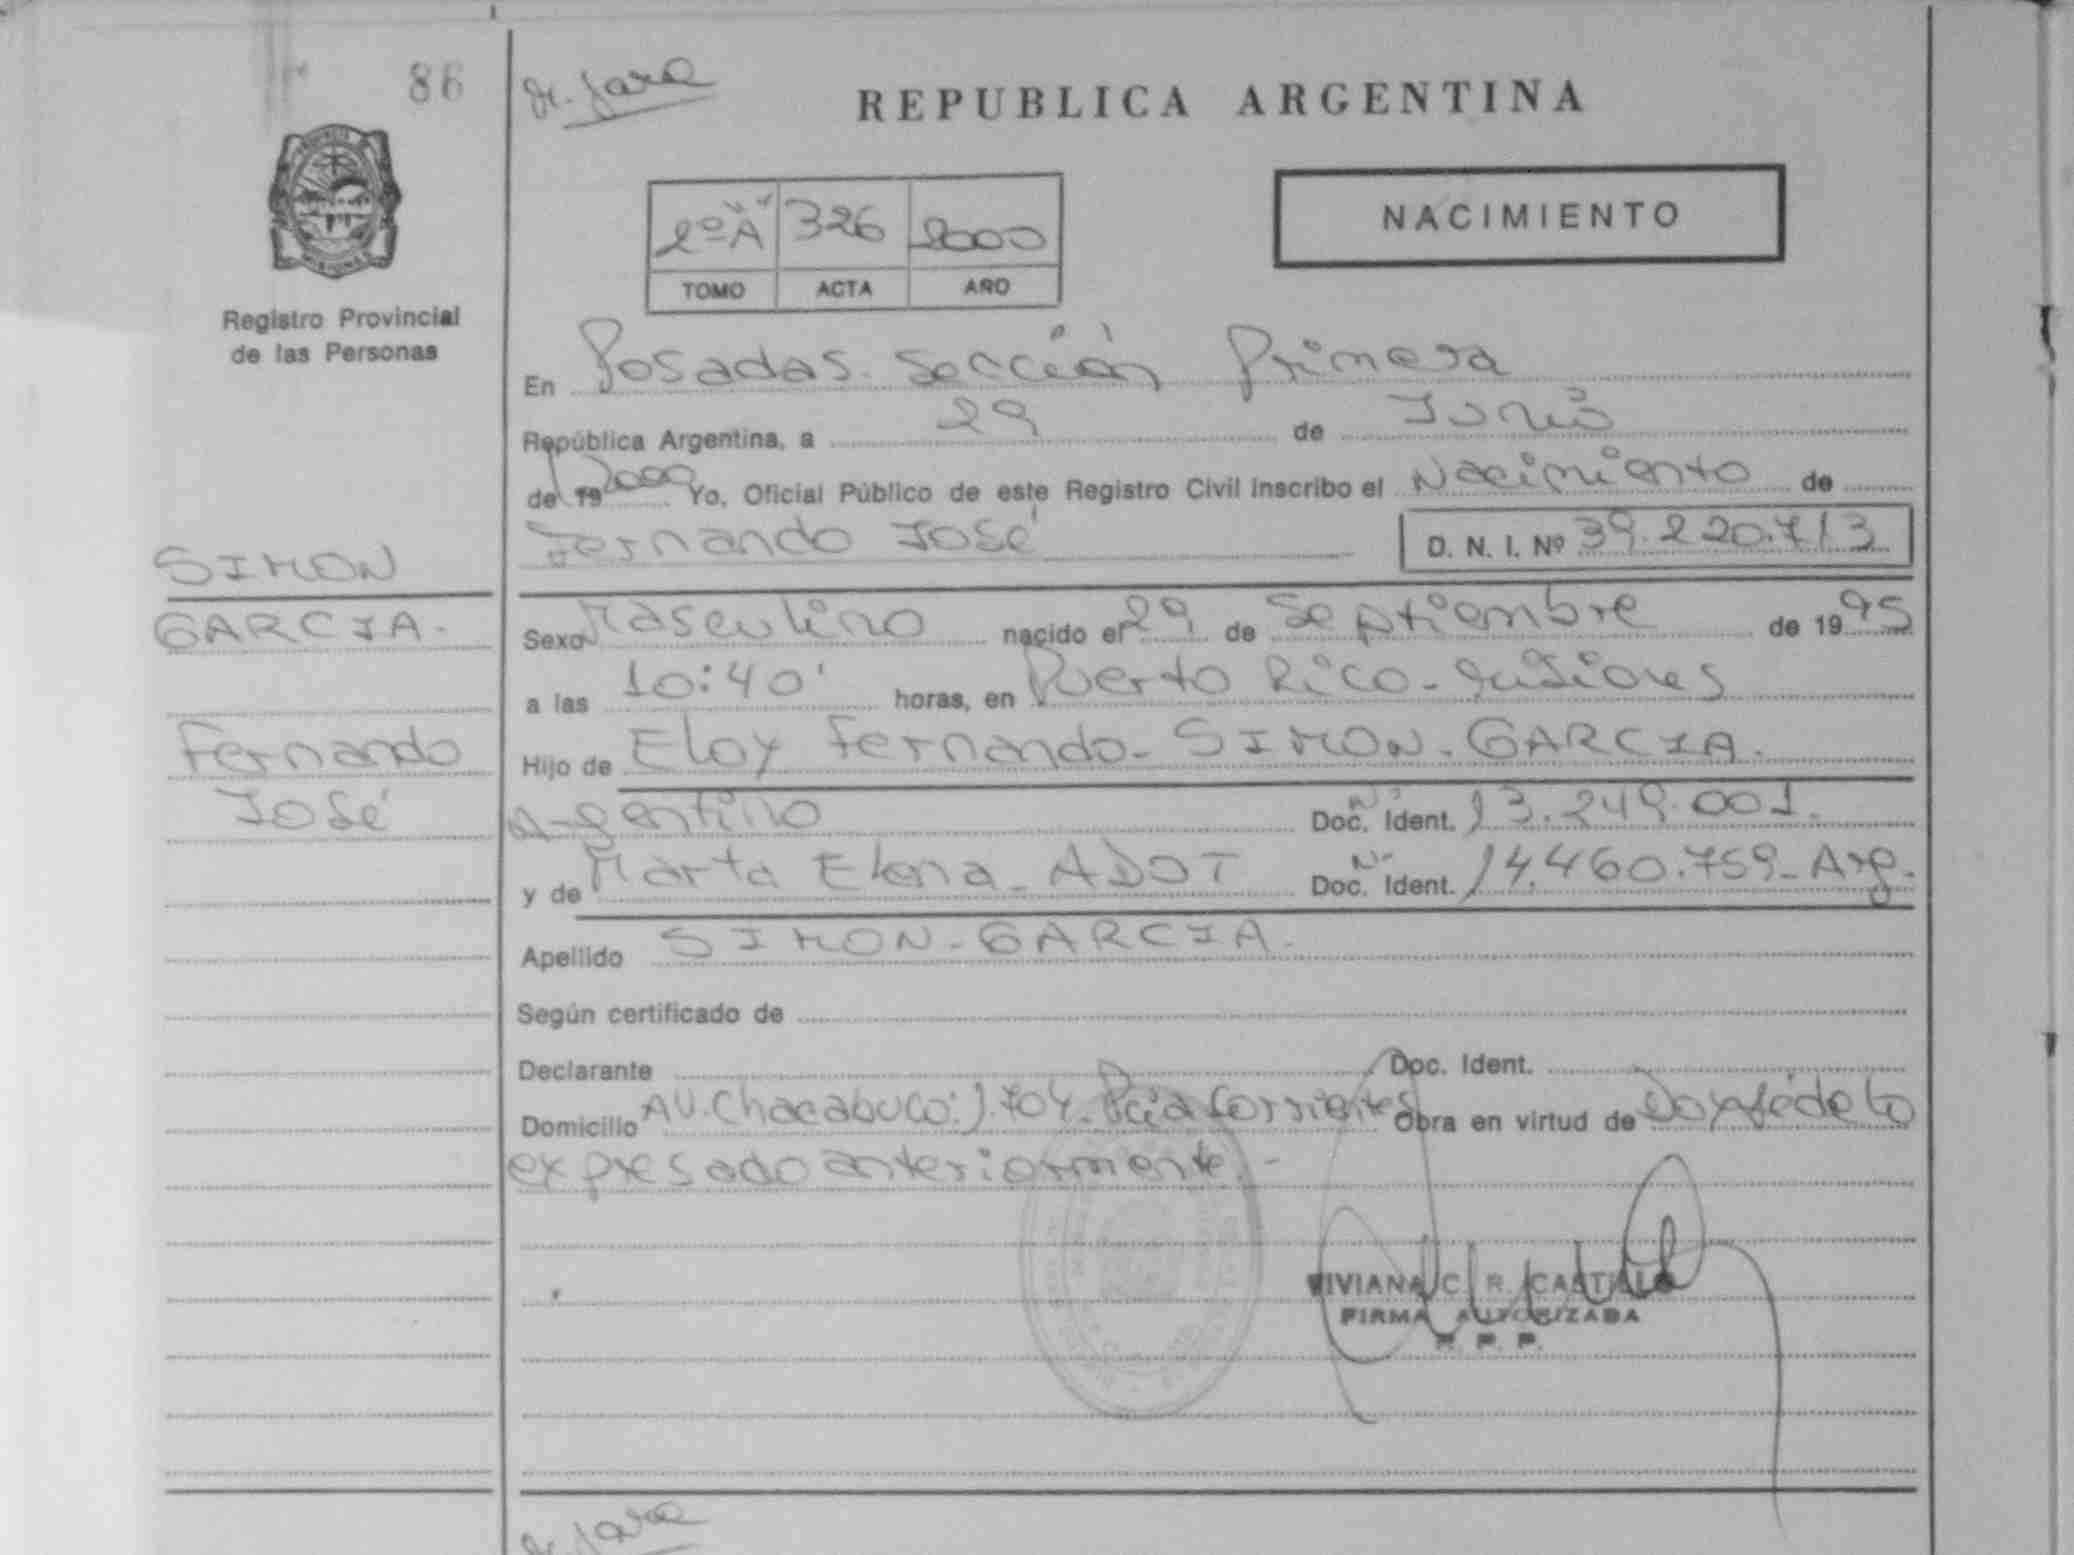 86
Dr. Jara
REPUBLICA ARGENTINA
2º A 326 2000
TOMO ACTA AÑO
NACIMIENTO
Registro Provincial
de las Personas
En Posadas. Sección Primera
República Argentina, a 29 de Junio
de 19 2000 Yo, Oficial Público de este Registro Civil inscribo el Nacimiento de
Fernando José D. N. I. Nº 39.220.713
SIMON
GARCIA.
Fernando
José
Sexo Masculino nacido el 29 de Septiembre de 1995
a las 10:40' horas, en Puerto Rico - Misiones
Hijo de Eloy Fernando - SIMON - GARCIA.
Argentino Nº Doc. Ident. 13.249.001.
y de Marta Elena - ADOT Nº Doc. Ident. 14.460.759 - Arg.
Apellido SIMON - GARCIA.
Según certificado de
Declarante Doc. Ident.
Domicilio AV. Chacabuco: 1.704 - Pcia Corrientes Obra en virtud de Doy fé de lo
expresado anteriormente. -
VIVIANA C. R. CASTILLO
FIRMA AUTORIZADA
R. P. P.
Dr. Jara